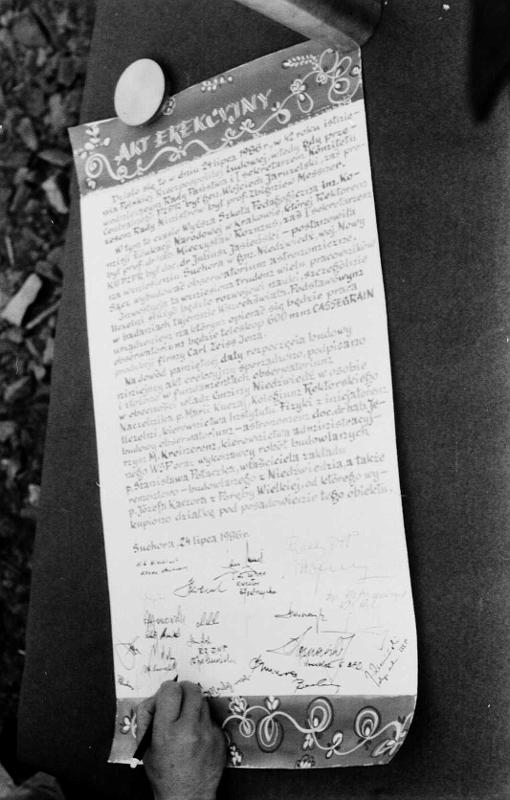 AKT EREKCYJNY
Działo się to w dniu 24 lipca 1986 r. w 42 roku istnie-
nia Polskiej Rzeczypospolitej Ludowej, wtedy gdy prze-
wodniczącym Rady Państwa i I sekretarzem Komitetu
Centralnego PZPR był gen. Wojciech Jaruzelski, zaś pre-
zesem Rady Ministrów był prof. Zbigniew Messner.
W tym to czasie Wyższa Szkoła Pedagogiczna im. Ko-
misji Edukacji Narodowej w Krakowie, której Rektorem
był prof. dr hab. Mieczysław Rozmus, zaś I sekretarzem
KU PZPR był doc. dr Julian Jasieński – postanowiła
na wzniesieniu Suchora w gm. Niedźwiedź, woj. Nowy
Sącz wybudować obserwatorium astronomiczne.
Inwestycja ta wzniesiona trudem wielu pracowników
Uczelni, służyć będzie rozwojowi nauki, szczególnie
w badaniach tajemnic Wszechświata. Podstawowym
urządzeniem na którym opierać się będzie praca
obserwatorium będzie teleskop 600 mm CASSEGRAIN
produkcji firmy Carl Zeiss Jena.
Na dowód pamiętnej daty rozpoczęcia budowy
niniejszy akt erekcyjny sporządzono, podpisano
i złożono w fundamentach obserwatorium
w obecności władz Gminy Niedźwiedź w osobie
Naczelnika p. Marii Kuczaj, Kolegium Rektorskiego
Uczelni, kierownictwa Instytutu Fizyki z inicjatorem
budowy obserwatorium – astronomem doc. dr hab. Je-
rzym M. Kreinerem, kierownictwa administracyj-
nego WSP oraz wykonawcy robót budowlanych
p. Stanisława Potaczka, właściciela zakładu
remontowo-budowlanego z Niedźwiedzia, a także
p. Józefa Kaczora z Poręby Wielkiej, od którego wy-
kupiono działkę pod posadowienie tego obiektu.
Suchora, 24 lipca 1986 r.